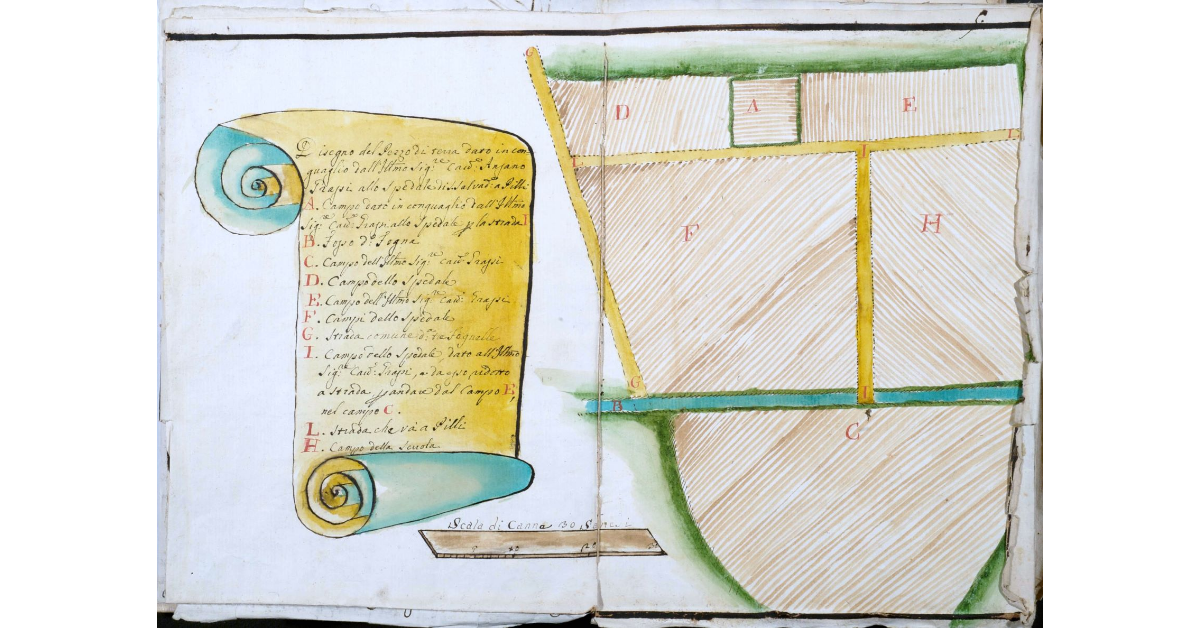 5.
Disegno del Pezzo di terra dato in con-
quaglio dall'Illmo Sigre Cavre Ansano
allo Spedale di S. Salvadre a Pilli
A. Campo dato in conquaglio dall'Illmo
Sigre Cavre allo Spedale p la strada I
B. Fosso do Sogna
C. Campo dell'Illmo Sigre Cavre
D. Campo dello Spedale
E. Campo dell'Illmo Sigre Cavre
F. Campi dello Spedale
G. Strada comune da
I. Campo dello Spedale, dato all'Illmo
Sigre Cavre, e da esso ridotto
a strada p andare dal Campo E,
nel campo C.
L. Strada che và a Pilli
H. Campo della Scuola
Scala di Canne 30 Sanesi
G
D
A
E
I
L
L
F
H
G
B
I
C